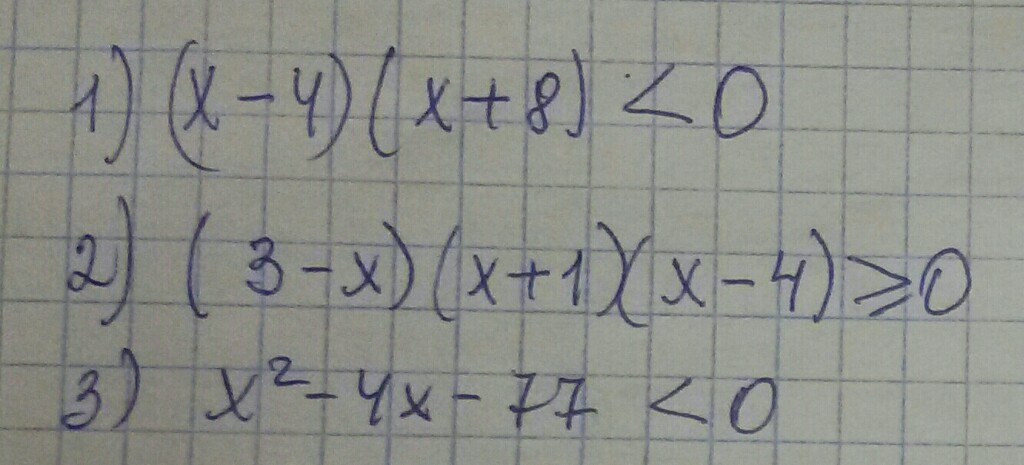 1) (x-4)(x+8) < 0
2) (3-x)(x+1)(x-4) ⩾ 0
3) x²-4x-77 < 0